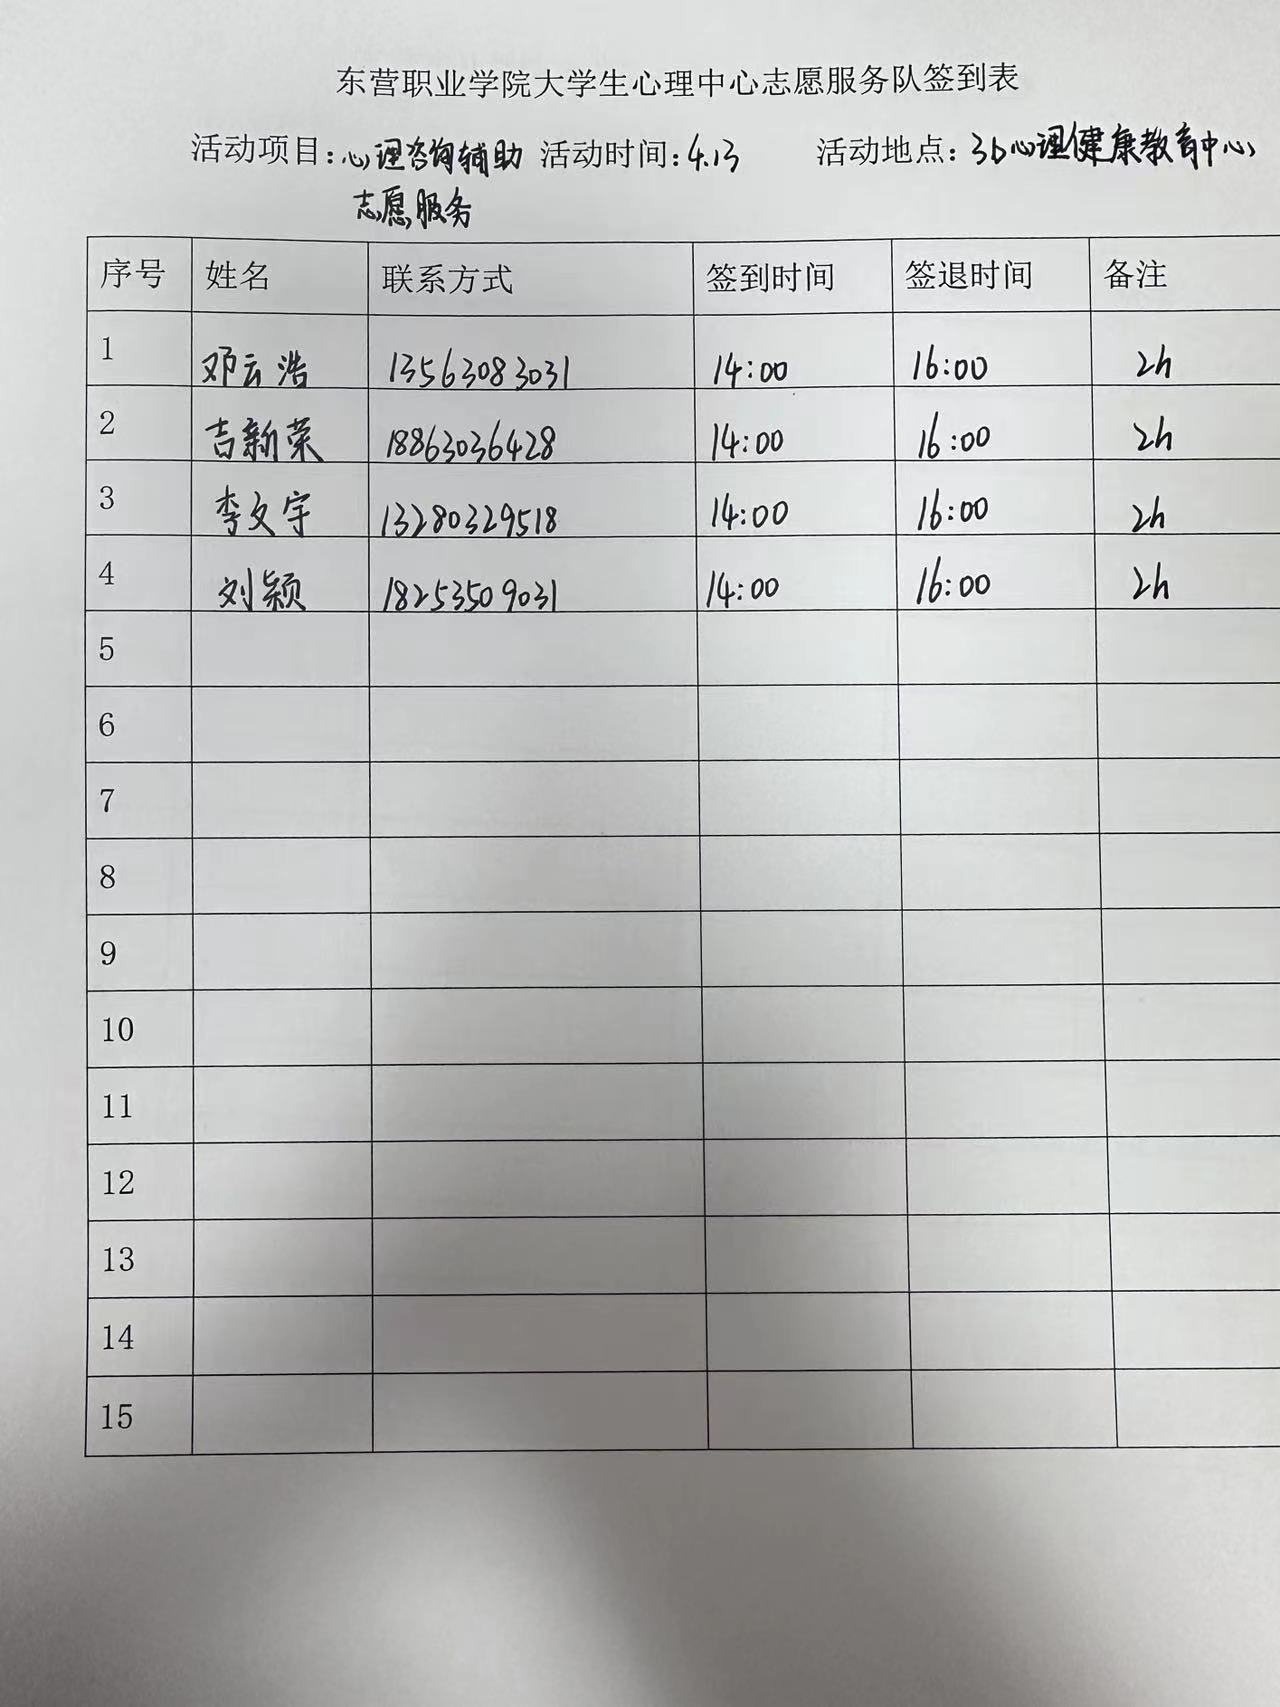 东营职业学院大学生心理中心志愿服务队签到表
活动项目:心理咨询辅助 活动时间:4.13 活动地点:3b心理健康教育中心
志愿服务
序号 姓名 联系方式 签到时间 签退时间 备注
1 邓云浩 13563083031 14:00 16:00 2h
2 吉新荣 18863036428 14:00 16:00 2h
3 李文宇 13280329518 14:00 16:00 2h
4 刘颖 18253509031 14:00 16:00 2h
5
6
7
8
9
10
11
12
13
14
15